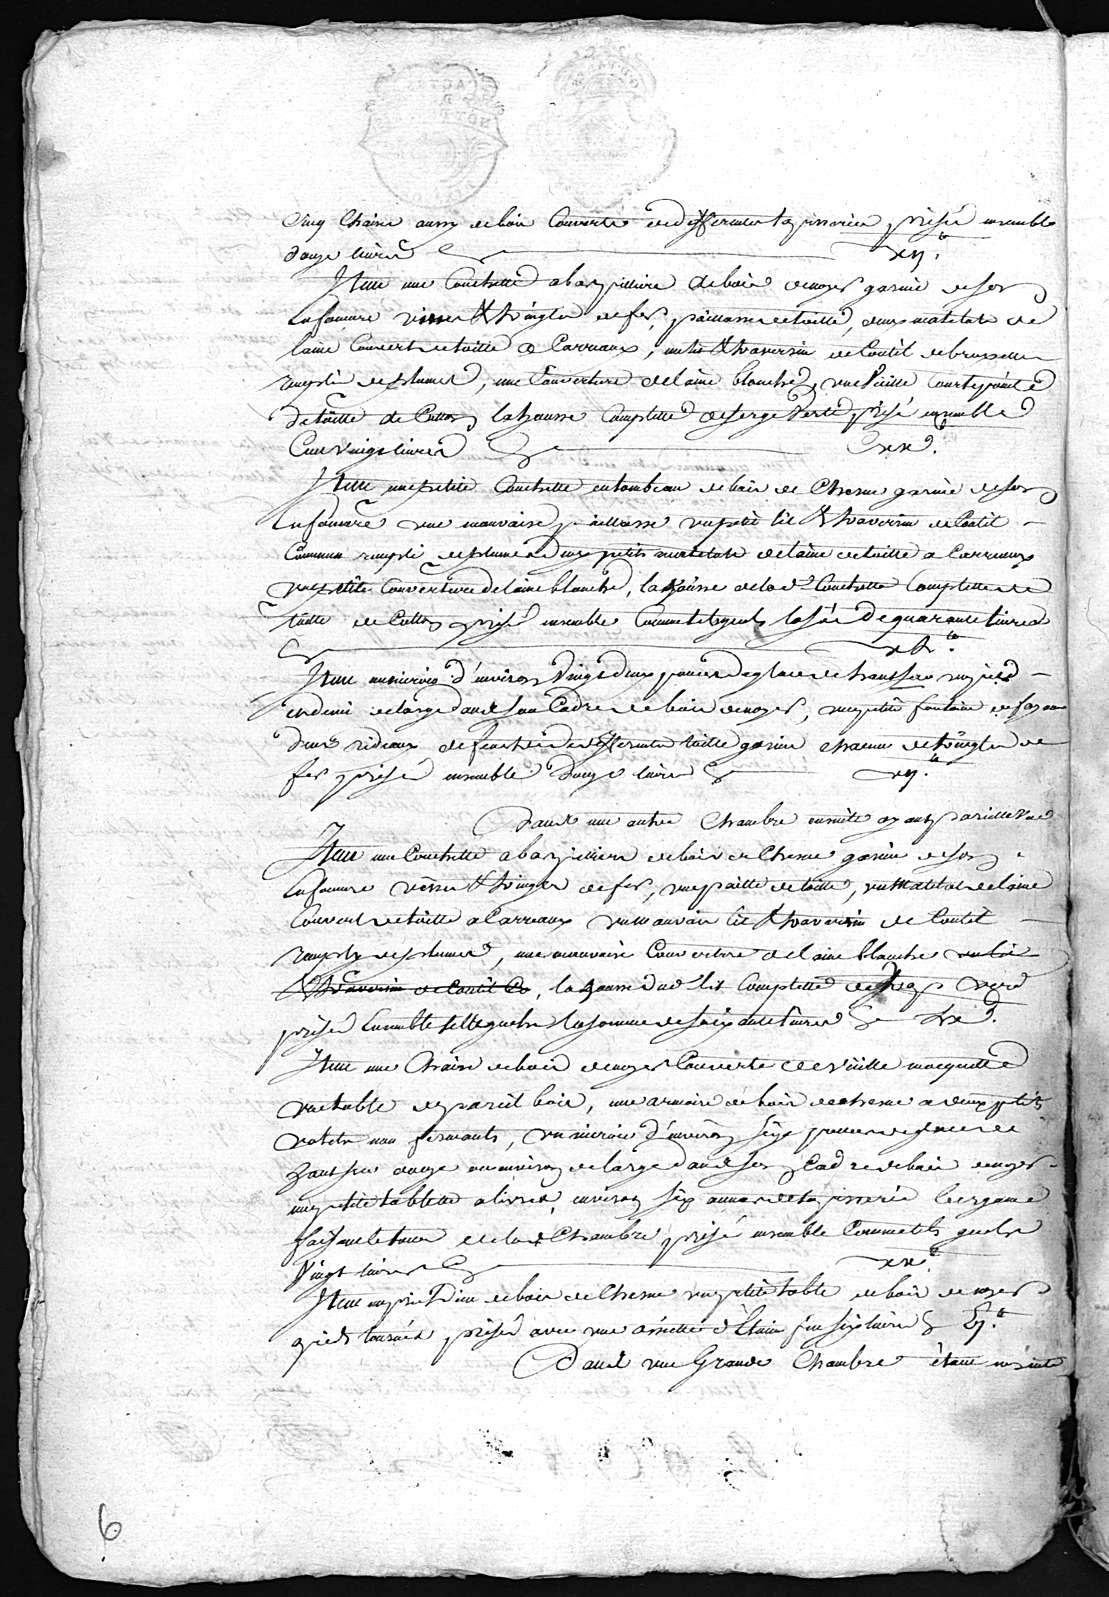 Cinq Chaises aussy de bois Couvertes de differentes tapisseries prisés ensemble
douze livres xij lt
Item une Couchette a bas pilliers de bois de noyer garnie de son
enfonçure vis et tringles de fer, paillasse de toille, deux matelats de
laine Couverts de toille a Carreaux, un lit et traversin de Coutil de bruxelles
remply de plumes, une Couverture de laine blanche, une Vieille Courtepointe
de toille de Cotton la housse Complette de serge Verte prisé ensemble
Cent vingt livres Cxx lt
Item une petite Couchette en tombeau de bois de Chesne garnie de son
enfonçure une mauvaise paillasse un petit lit et traversin de Coutil
Commun remply de plume deux petits matelats de laine de toille a Carreaux
une petite Couverture de laine blanche, la housse de lad. Couchette Complette de
toille de Cotton prisé ensemble Comme tel quel la so͞e de quarante livres
xl lt
Item un miroir d'environ Vingt deux pouces de glace de haut sur un pied
et demi de large dans son Cadre de bois de noyer, une petite fontaine de fayance
deux rideaux de fenestre de differentes toilles garnis chacun de tringles de
fer prisé ensemble douze livres xij lt
Dans une autre Chambre ensuite ayant pareille vue
Item une Couchette a bas pilliers de bois de Chesne garnie de son
enfonçure vis et tringles de fer, une paille de toille, un Matelat de laine
Couvert de toille a Carreaux un mauvais lit et traversin de Coutil
remply de plumes, une mauvaise Couverture de laine blanche un lit
et traversin de Coutil Co, la housse dud. lit Complette de serge Verte
prisés Ensemble tel que la somme de soixante livres Lx lt
Item une Chaise de bois de noyer Couverte de vieille moquette
une table de pareil bois, une armoire de bois de chesne a deux petits
volets non fermants, un miroir d'environ seize pouces de glace de
haut sur douze ou environ de large dans son Cadre de bois de noyer
une petite tablette a livres, environ six aunes de tapisserie bergame
faisant le tour de lad. Chambre, prisé ensemble Comme tels quels
Vingt livres xx lt
Item un prie Dieu de bois de Chesne une petite table de bois de noyer
a pieds tournés prisés avec une assiette d'Etain six livres vj lt
Dans une Grande Chambre étant ensuite
6